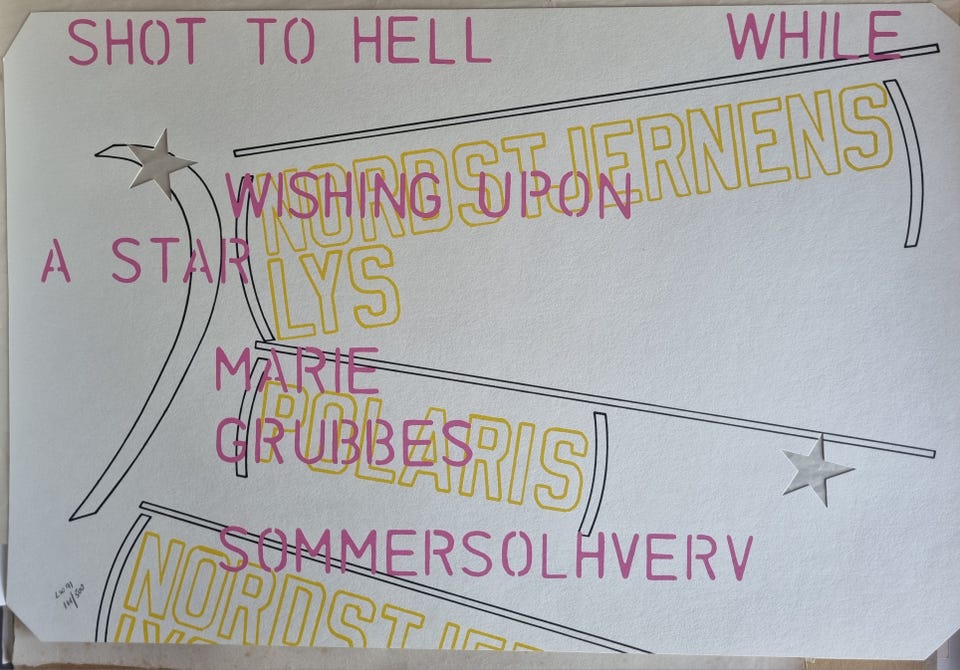 SHOT TO HELL WHILE
NORDSTJERNENS
WISHING UPON
A STAR
LYS
MARIE
POLARIS
GRUBBES
SOMMERSOLHVERV
NORDSTJER
LW 91
/500